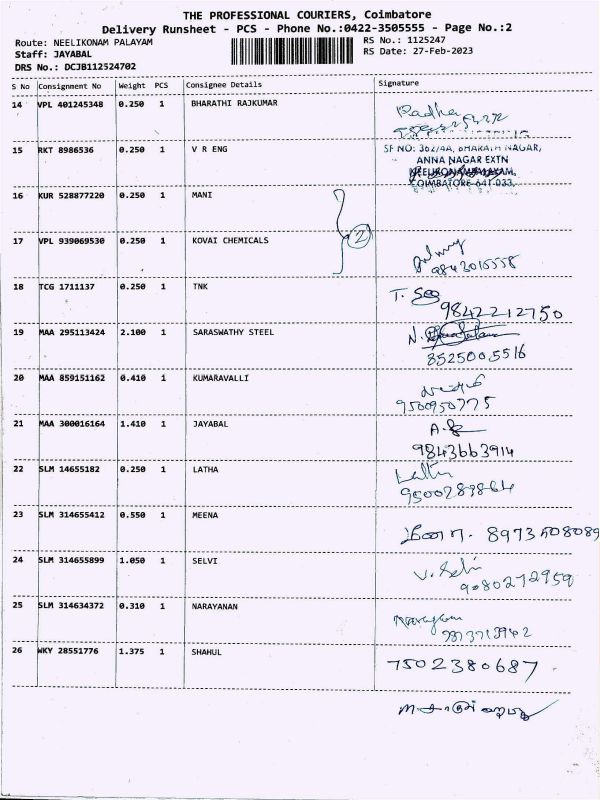 THE PROFESSIONAL COURIERS, Coimbatore
Delivery Runsheet - PCS - Phone No.:0422-3505555 - Page No.:2
Route: NEELIKONAM PALAYAM
RS No.: 1125247
Staff: JAYABAL
RS Date: 27-Feb-2023
DRS No.: DCJB112524702
S No Consignment No Weight PCS Consignee Details Signature
14 VPL 401245348 0.250 1 BHARATHI RAJKUMAR Radha
15 RKT 8986536 0.250 1 V R ENG SF NO: 362/4A, BHARATH NAGAR,
ANNA NAGAR EXTN
NEELIKONAMPALAYAM,
COIMBATORE-641 033.
16 KUR 528877220 0.250 1 MANI
2
17 VPL 939069530 0.250 1 KOVAI CHEMICALS
9843015558
18 TCG 1711137 0.250 1 TNK T.
9842212750
19 MAA 295113424 2.100 1 SARASWATHY STEEL N.
8525005516
20 MAA 859151162 0.410 1 KUMARAVALLI
9500950775
21 MAA 300016164 1.410 1 JAYABAL A.
9843663914
22 SLM 14655182 0.250 1 LATHA Latha
9500289864
23 SLM 314655412 0.550 1 MEENA மீனா. 8973508089
24 SLM 314655899 1.050 1 SELVI V. Selvi
9080272959
25 SLM 314634372 0.310 1 NARAYANAN Narayanan
26 WKY 28551776 1.375 1 SHAHUL 7502380687